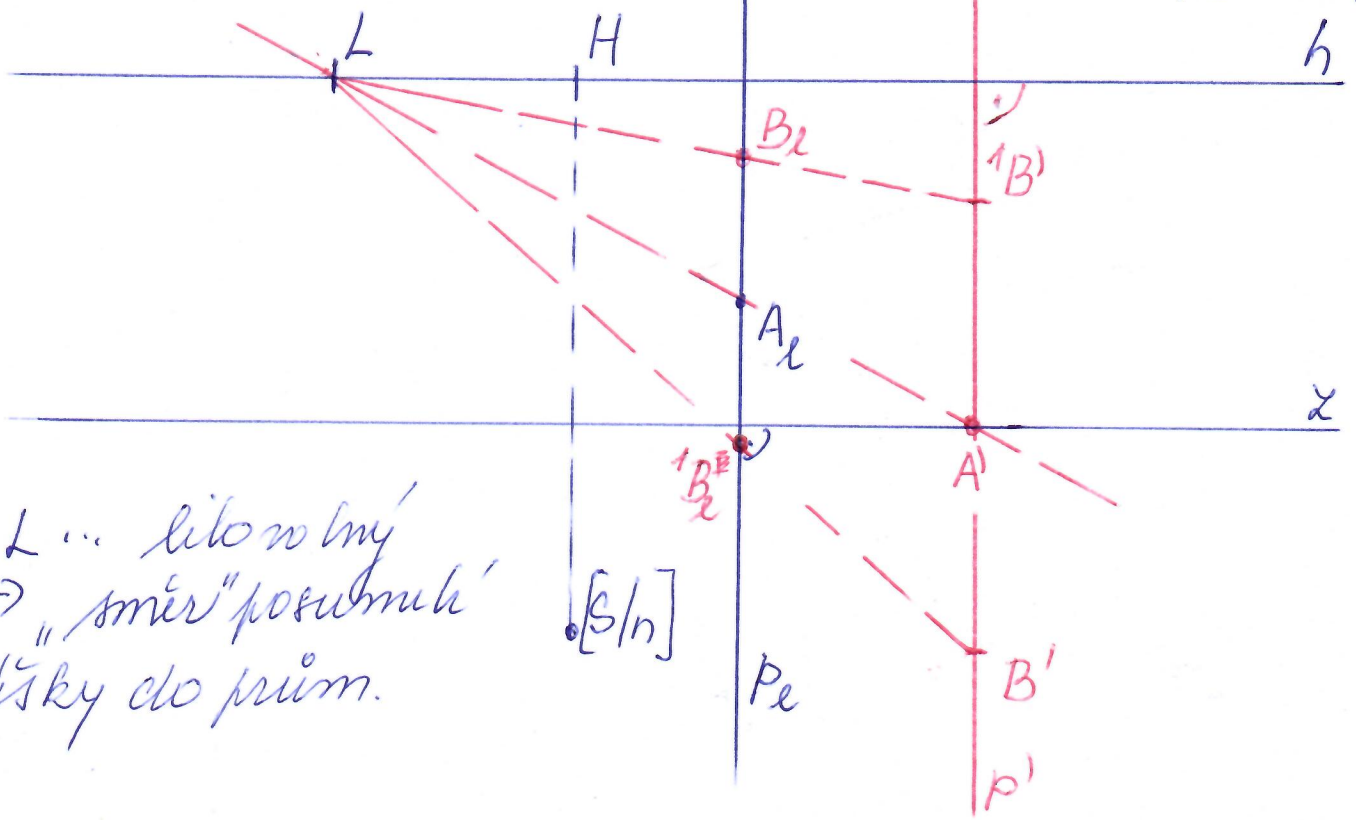 L
H
h
B_l
¹B'
A_l
z
¹B_l
A'
L ... libovolný
⇒ „směr" posunutí
výšky do prům.
[S/n]
B'
P_l
p'